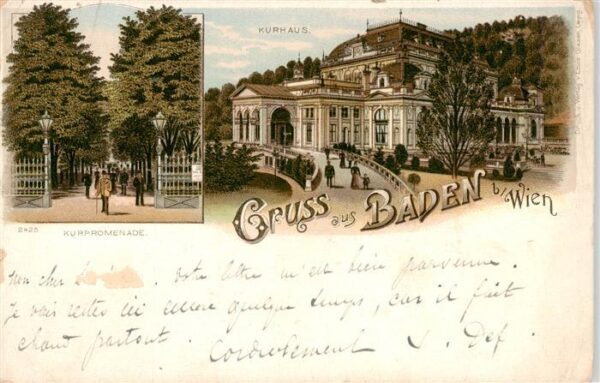 KURHAUS.
GRUSS aus BADEN b/Wien
2425
KURPROMENADE.
Mon cher votre lettre m'est bien parvenue.
Je vais rester ici encore quelque temps, car il fait
chaud partout. Cordialement